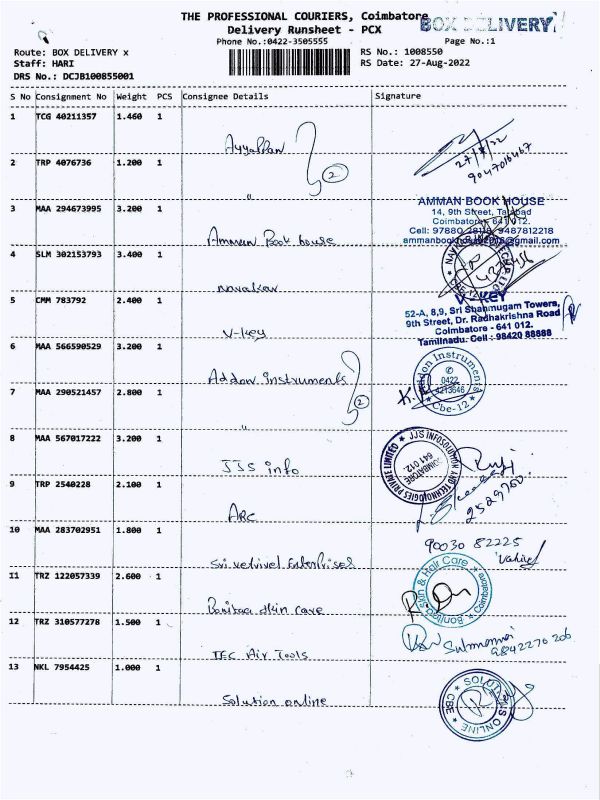 THE PROFESSIONAL COURIERS, Coimbatore
BOX DELIVERY
Delivery Runsheet - PCX
Phone No.:0422-3505555
Page No.:1
Route: BOX DELIVERY x
RS No.: 1008550
Staff: HARI
RS Date: 27-Aug-2022
DRS No.: DCJB100855001
S No Consignment No Weight PCS Consignee Details Signature
1 TCG 40211357 1.460 1
Ayyappan
27/8/22
9047016467
2 TRP 4076736 1.200 1
2
"
3 MAA 294673995 3.200 1
Amman Book house
AMMAN BOOK HOUSE
14, 9th Street, Tatabad
Coimbatore - 641 012.
Cell: 97880 9487812218
4 SLM 302153793 3.400 1
Navakar
5 CMM 783792 2.400 1
V-key
V-KEY
52-A, 8,9, Sri Shanmugam Towers,
9th Street, Dr. Radhakrishna Road
Coimbatore - 641 012.
Tamilnadu. Cell : 98420 88888
6 MAA 566590529 3.200 1
Addon instruments
Addon Instruments
0422
4213646
Cbe-12
7 MAA 290521457 2.800 1
2
"
8 MAA 567017222 3.200 1
JJS info
JJS INFOSOLUTION AND TECHNOLOGIES PRIVATE LIMITED
COIMBATORE
641 012.
9 TRP 2540228 2.100 1
ARC
2529700
10 MAA 283702951 1.800 1
Sri vetrivel Enterprises
90030 82225
11 TRZ 122057339 2.600 1
Bonitaa skin care
Bonitaa Skin & Hair Care
Coimbatore
12 TRZ 310577278 1.500 1
IEC Air Tools
9842270206
13 NKL 7954425 1.000 1
Solution online
SOLUTIONS ONLINE
CBE